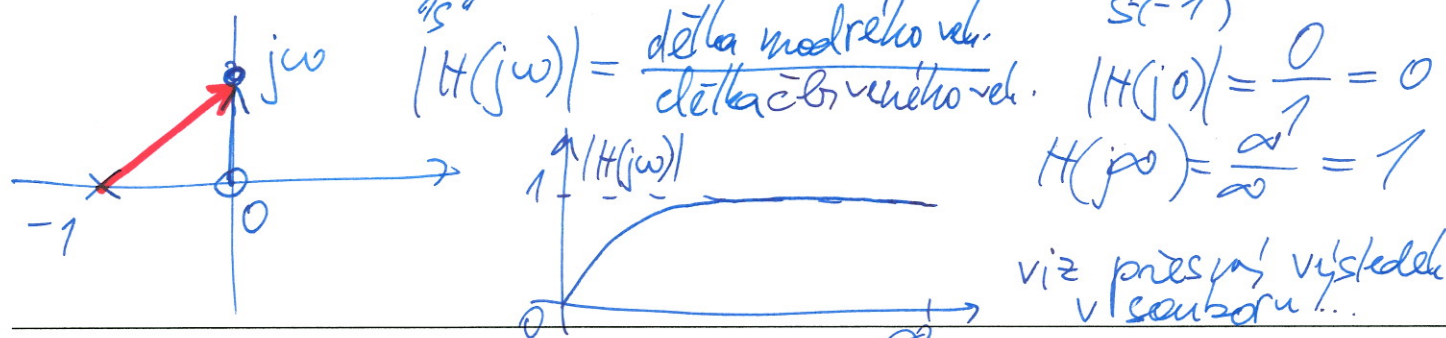 "s"
s-(-1)
jω
|H(jω)| = délka modrého vek. / délka červeného vek.
|H(j0)| = 0/1 = 0
H(j∞) = ∞/∞ = 1
-1
0
|H(jω)|
1
0
∞
viz přesný výsledek
v souboru...